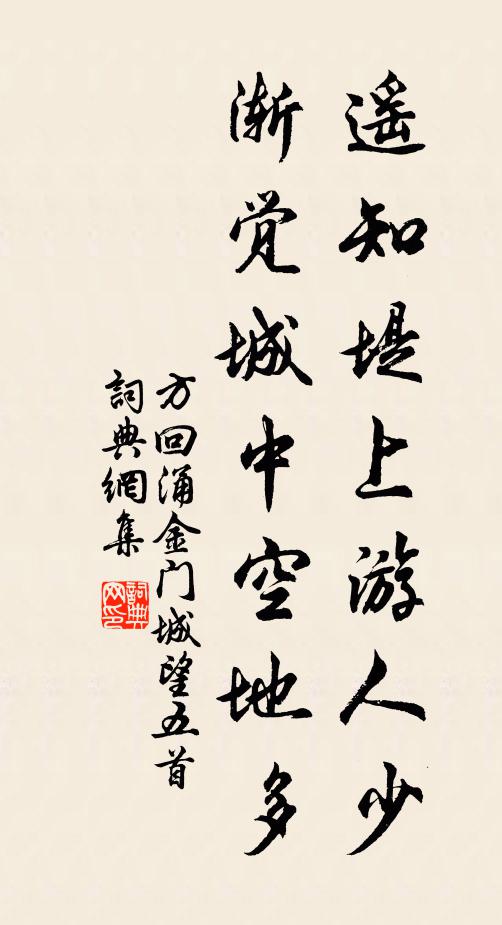 遥知堤上游人少
渐觉城中空地多
方回涌金门城望五首
詞典網集
詞典网印